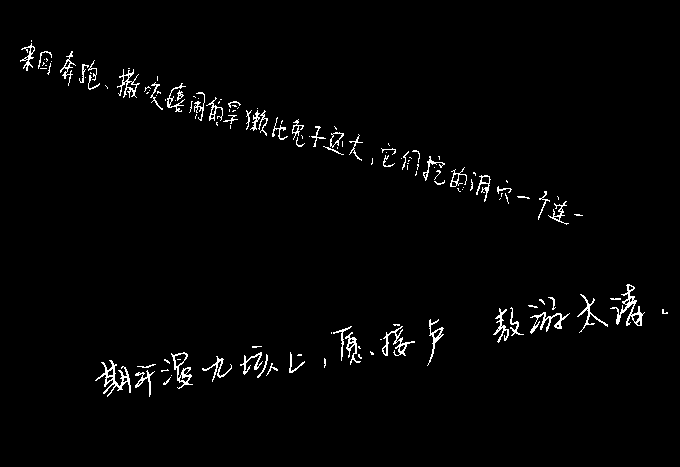 来回奔跑、撒咬嬉闹的旱獭比兔子还大,它们挖的洞穴一个连一
期汗漫九垓上,愿接卢 敖游太清。